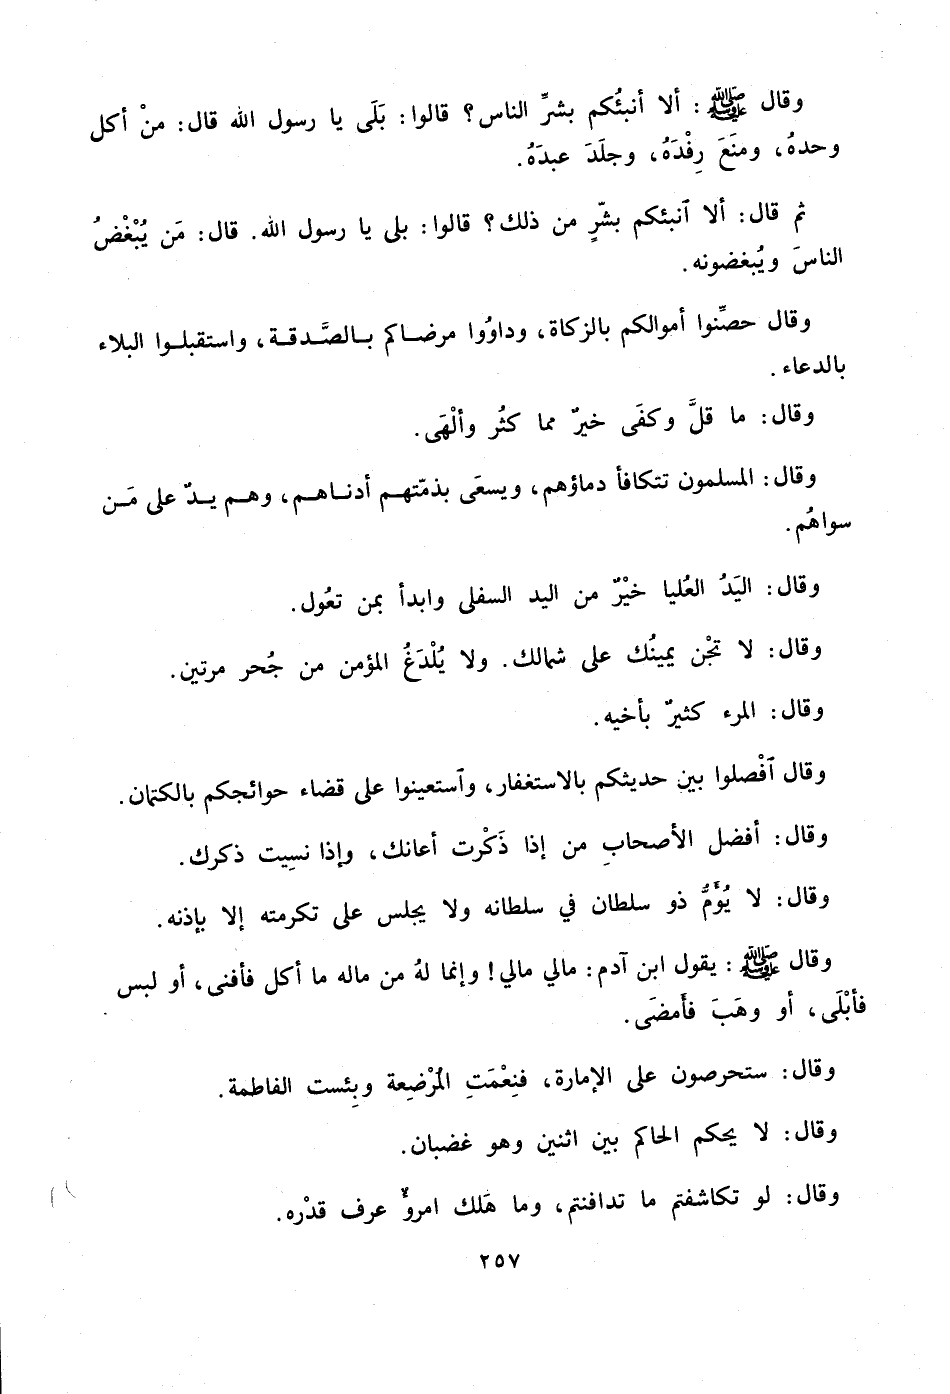 وقال ﷺ : ألا أنبئُكم بشرِّ الناس؟ قالوا: بَلَى يا رسول الله قال: منْ أكل
وحدهُ، ومنَعَ رِفْدَهُ، وجلَدَ عبدَهُ.
ثم قال: ألا اَنبئكم بشّرٍ من ذلك؟ قالوا: بلى يا رسول الله. قال: مَن يُبْغْضُ
الناسَ ويُبغضونه.
وقال حصِّنوا أموالكم بالزكاة، وداوُوا مرضاكم بالصَّدقة، واستقبلوا البلاء
بالدعاء.
وقال: ما قلَّ وكفَى خيرٌ مما كثُر وألْهَى.
وقال: المسلمون تتكافأ دماؤهم، ويسعَى بذمّتهم أدناهم، وهم يدّ على مَن
سواهُم.
وقال: اليَدُ العُليا خيْرٌ من اليد السفلى وابدأ بمن تعُول.
وقال: لا تجْن يمينُك على شمالك. ولا يُلْدَغُ المؤمن من جُحر مرتين.
وقال: المرء كثيرٌ بأخيه.
وقال اَفْصلوا بين حديثكم بالاستغفار، واَستعينوا على قضاء حوائجكم بالكتمان.
وقال: أفضل الأصحابِ من إذا ذَكْرت أعانك، وإذا نسِيت ذكرك.
وقال: لا يُؤَمُّ ذو سلطان في سلطانه ولا يجلس على تكرمته إلا بإذنه.
وقال ﷺ : يقول ابن آدم: مالي مالي! وإنما لهُ من ماله ما أكل فأفنى، أو لبس
فأبْلَى، أو وهَبَ فأَمضَى.
وقال: ستحرصون على الإمارة، فنِعْمَتِ المُرْضِعة وبِئست الفاطمة.
وقال: لا يحكم الحاكم بين اثنين وهو غضبان.
وقال: لو تكاشفتم ما تدافنتم، وما هَلك امروٌّ عرف قدْره.
٢٥٧